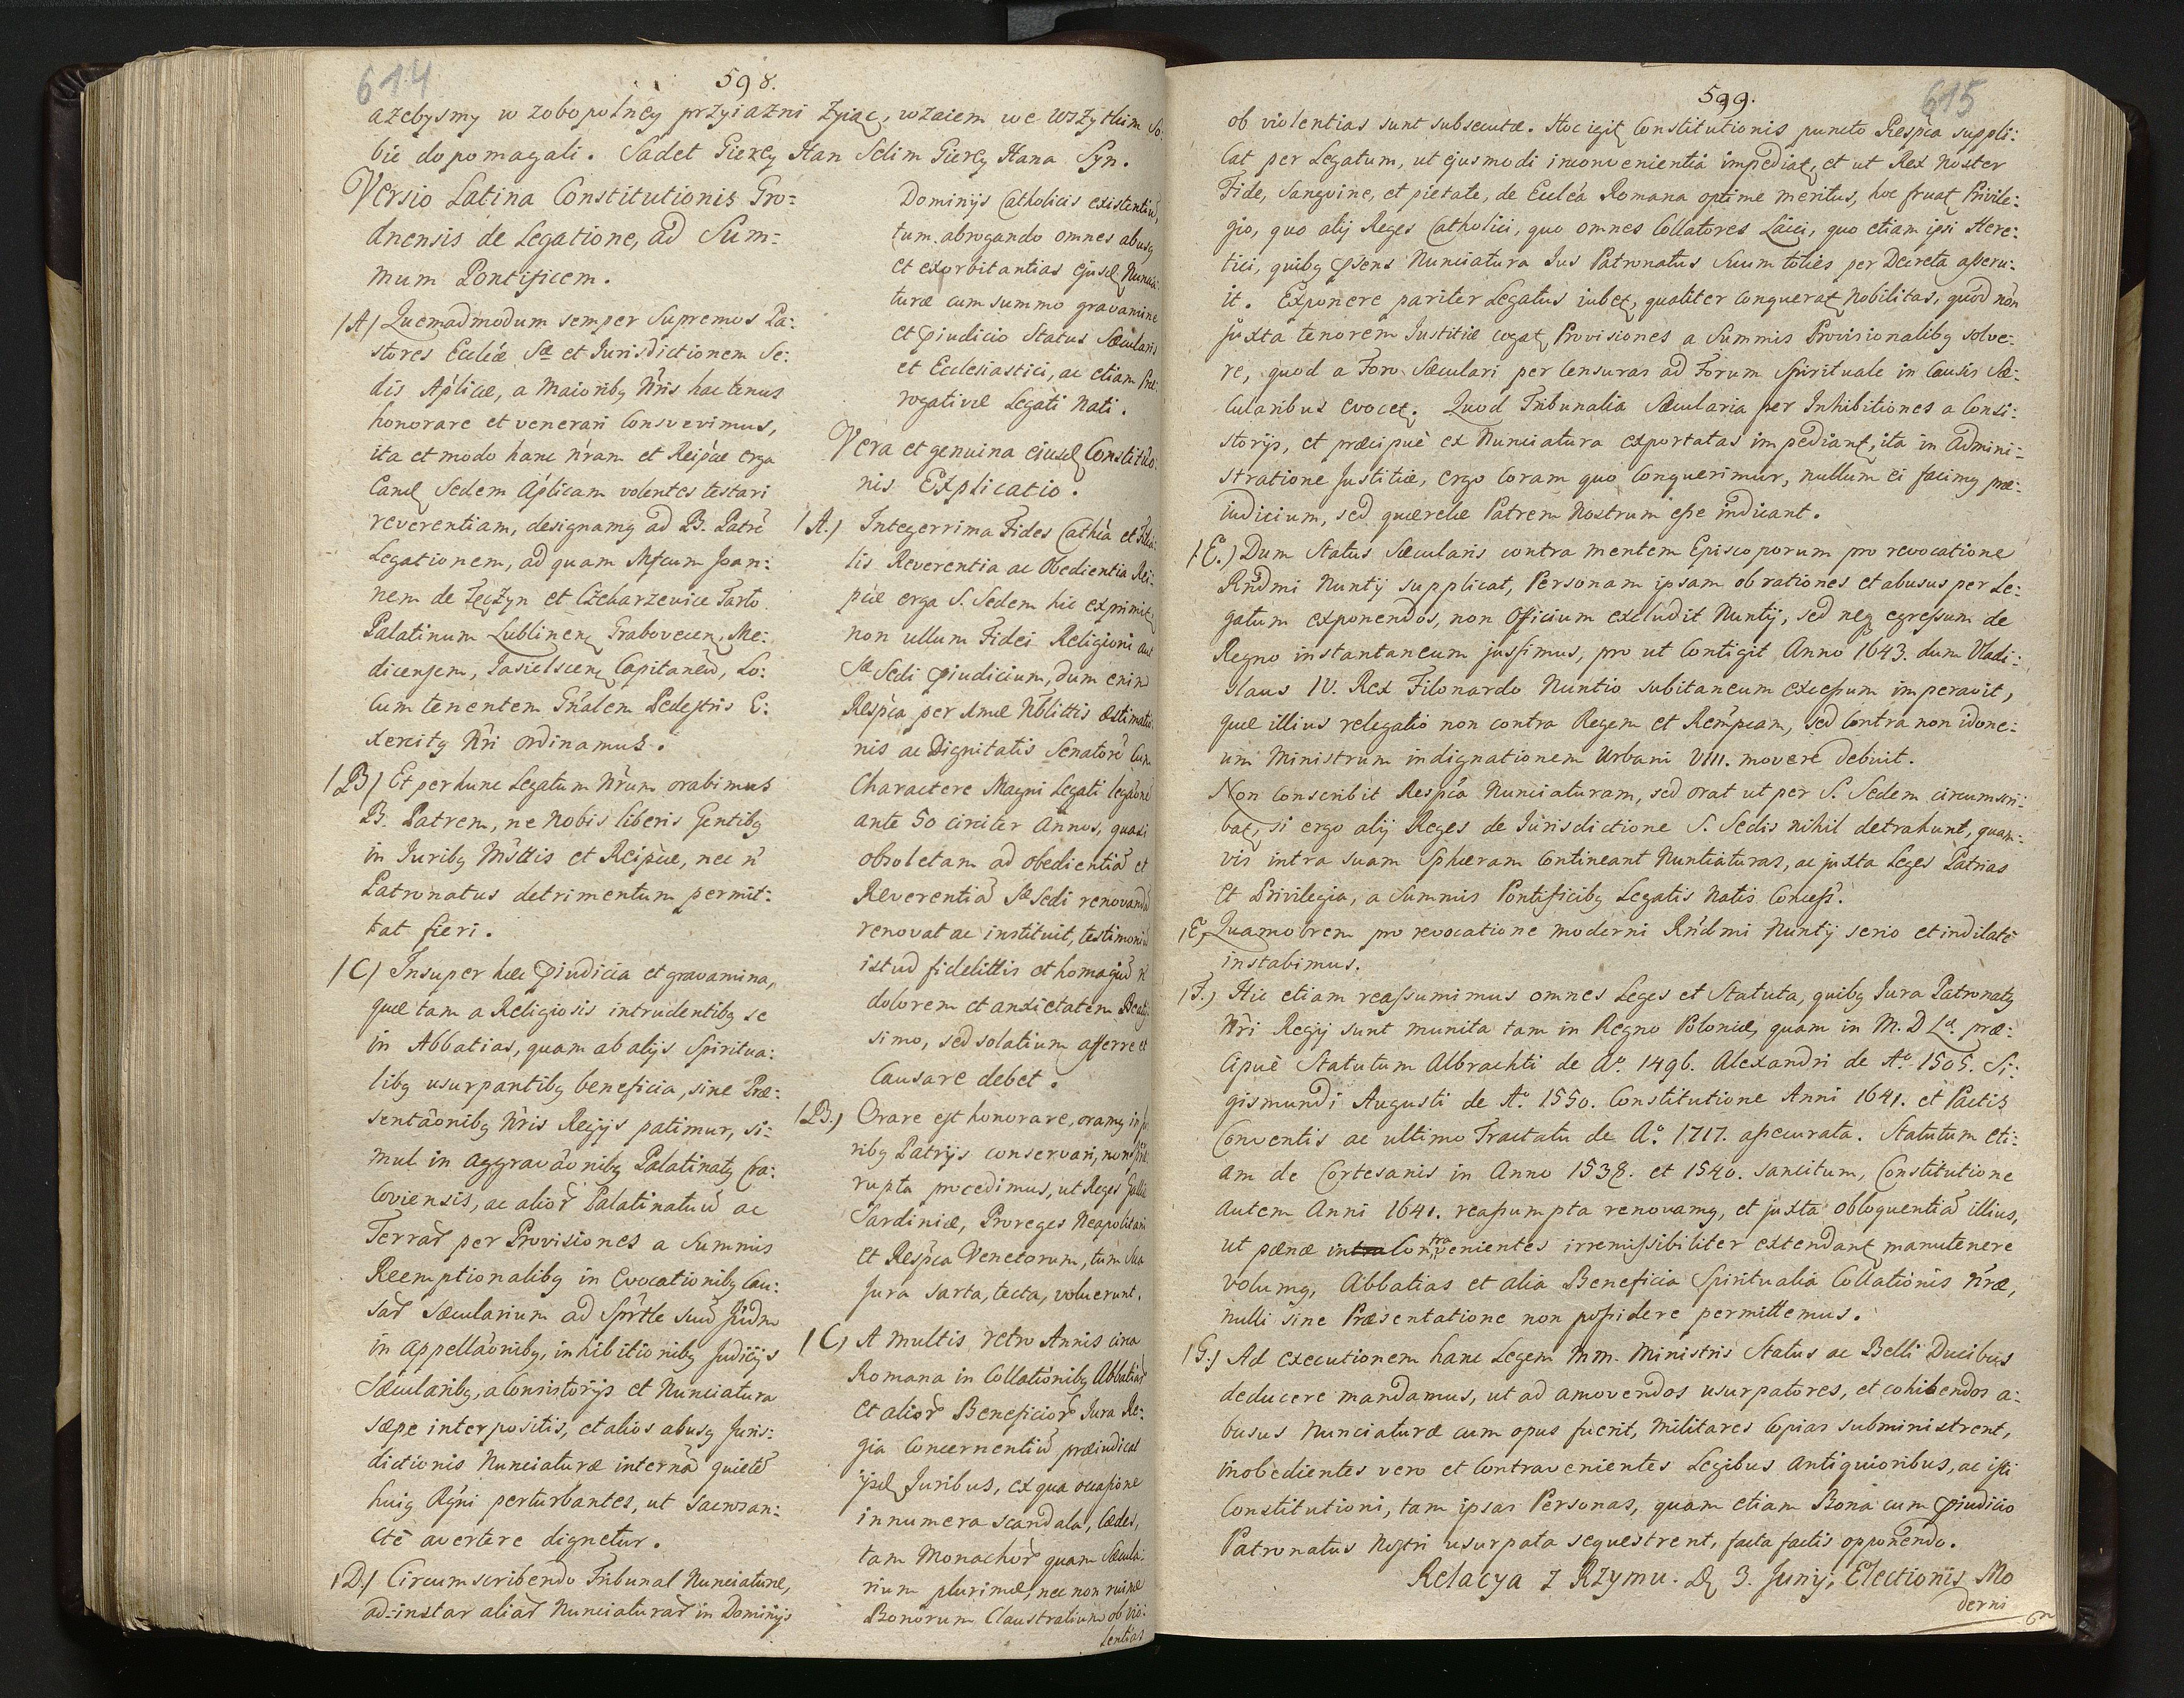 614
598.
azebysmy w zobopolney przyiazni zyiąc, wzaiem we wszytkim so-
bie dopomagali. Sadet Gierey Han Selim Gierey Hana Syn.
Versio Latina Constitutionis Gro:
dnensis de Legatione, ad Sum:
mum Pontificem.
(A) Quemadmodum semper Supremos Pa:
stores Eccléæ Sæ et Jurisdictionem Se:
dis Aplicæ, a Maioribq Nris hactenus
honorare et venerari Consvevimus,
ita et modo hanc nram et Reipcæ erga
Eand Sedem Aplicam volentes testari
reverentiam, designamq ad B. Patrē
Legationem, ad quam Mfcum Joan:
nem de Tęczyn et Czekarzewice Tarło
Palatinum Lublinen, Grabovecen, Me:
dicensem, Jasielscen Capitaneū, Lo:
cum tenentem Gnalem Pedestris E:
xercitq Nri ordinamus.
(B) Et per hunc Legatum Nrum orabimus
B. Patrem, ne Nobis liberis Gentibq
in Juribq Msttis et Reipcæ, nec n
Patronatus detrimentum permit:
tat fieri.
(C) Insuper hæc pjudicia et gravamina,
quæ tam a Religiosis intrudentibq se
in Abbatias, quam ab alijs Spiritua:
libq usurpantibq beneficia, sine Præ:
sentaonibq Nris Regijs patimur, si:
mul in aggravaonibq Palatinatq Cra:
coviensis, ac alior Palatinatuū ac
Terrar per Provisiones a Summis
Reemptionalibq in Evocationibq Cau:
sar Sæcularium ad Sprtle suū Judm
in appellaonibq, inhibitionibq Judicijs
Sæcularibq, a Consistorijs et Nunciatura
sæpe interpositis, et alios abusq Juris:
dictionis Nunciaturæ internā quietē
huiq Rgni perturbantes, ut sacrosan:
cte avertere dignetur.
(D.) Circumscribendo Tribunal Nunciaturæ,
ad instar aliar Nunciaturar in Dominijs
Dominijs Catholicis existentiū,
tum abrogando omnes abusq
et exorbitantias ejusd Nuncia:
turæ cum summo gravamine
et pjudicio Status Sæcularis
et Ecclesiastici, ac etiam Præ:
rogativæ Legati Nati.
Vera et genuina eiusd Constituo:
nis Explicatio.
(A.) Integerrima Fides Cathca et Filia:
lis Reverentia ac Obedientia Rei:
pcæ erga S. Sedem hic exprimit,
non ullum Fidei Religioni aut
Sæ Sedi pjudicium, dum enim
Respca per Nblittis æstimatio:
nis ac Dignitatis Senatorē Cum
Charactere Magni Legati legaone
ante 50 circiter Annos, quasi
obsoletam ad obedientiā et
Reverentiā Sæ Sedi renovandā
renovat ac instituit, testimoniū
istud fidelittis et homagiū n
dolorem et anxietatem Beatis:
simo, sed solatium afferre et
causare debet.
(B.) Orare est honorare, oramq in Ju:
ribq Patrijs conservari, non
rupta procedimus, ut Reges Galliæ
Sardiniæ, Proreges Neapolitani
et Respca Venetorum, tum sua
Jura sarta, tecta, voluerunt.
(C) A multis retro Annis circa
Romana in Collationibq Abbatiar
et alior Beneficior Jura Re:
gia Concernentiū præiudicat
ijsd Juribus, ex qua occasione
innumera scandala, cædes,
tam Monachor quam Sæcula:
rium plurimæ, nec non ruinæ
Bonorum Claustralium ob vio:
lentias
599.
615
ob violentias sunt subsecutæ. Hoc igit Constitutionis puncto Respca suppli:
cat per Legatum, ut ejusmodi inconvenientia impediat, et ut Rex Noster
Fide, Sangvine, et pietate, de Eccléa Romana optime meritus, hoc fruat Privile:
gio, quo alij Reges Catholici, quo omnes Collatores Laici, quo etiam ipsi Here:
tici, quibq psens Nunciatura Jus Patronatus Suum toties per Decreta asseru:
it. Exponere pariter Legatus iubet, qualiter conquerat Nobilitas, quod non
juxta tenorem Justitiæ cogat Provisiones a Summis Provisionalibq solve:
re, quod a Foro Sæculari per Censuras ad Forum Spirituale in Causis Sæ:
cularibus evocet. Quod Tribunalia Sæcularia per Inhibitiones a Consi:
storijs, et præcipuè ex Nunciatura exportatas impediant, ita in Admini:
stratione Justitiæ, ergo coram quo conquerimur, nullum ei facimq præ:
iudicium, sed querelæ Patrem Nostrum esse indicant.
(E.) Dum Status Sæcularis contra mentem Episcoporum pro revocatione
Rndmi Nuntij supplicat, Personam ipsam ob rationes et abusus per Le:
gatum exponendos, non Officium excludit Nuntij, sed neq egressum de
Regno instantaneum jussimus, pro ut Contigit Anno 1643. dum Vladi:
slaus IV. Rex Filonardo Nuntio subitaneum excessum imperavit,
quæ illius relegatio non contra Regem et Rempcam, sed Contra non idone:
um Ministrum indignationem Urbani VIII. movere debuit.
Non conscribit Respca Nunciaturam, sed orat ut per S. Sedem circumscri:
bat, si ergo alij Reges de Jurisdictione S. Sedis nihil detrahunt, quam:
vis intra suam Sphæram Contineant Nuntiaturas, ac juxta Leges Patrias
et Privilegia, a Summis Pontificibq Legatis Natis Concess.
(E) Quamobrem pro revocatione moderni Rndmi Nuntij serio et indilatè
instabimus.
(F.) Hic etiam reassumimus omnes Leges et Statuta, quibq Jura Patronatq
Nri Regij sunt munita tam in Regno Poloniæ, quam in M. D La. præ:
cipuè Statutum Albrachti de Ao. 1496. Alexandri de Ao. 1505. Si:
gismundi Augusti de Ao. 1550. Constitutione Anni 1641. et Pactis
Conventis ac ultimo Tractatu de Ao. 1717. assecurata. Statutum eti:
am de Cortesanis in Anno 1538. et 1540. sancitum, Constitutione
autem Anni 1641. reassumpta renovamq, et juxta obloquentiā illius,
ut pænæ in Contravenientes irremissibiliter extendant manutenere
volumq, Abbatias et alia Beneficia Spiritualia Collationis nræ,
nulli sine Præsentatione non possidere permittemus.
(G.) Ad executionem hanc Legem Mm. Ministris Status ac Belli Ducibus
deducere mandamus, ut ad amovendos usurpatores, et cohibendos a:
busus Nunciaturæ cum opus fuerit, Militares Copias subministrent,
inobedientes vero et Contravenientes Legibus Antiquioribus, ac isti
Constitutioni, tam ipsas Personas, quam etiam Bona cum pjudicio
Patronatus Nostri usurpata sequestrent, facta factis opponendo.
Relacya z Rzymu. D 3. Junij, Electionis Mo
derni